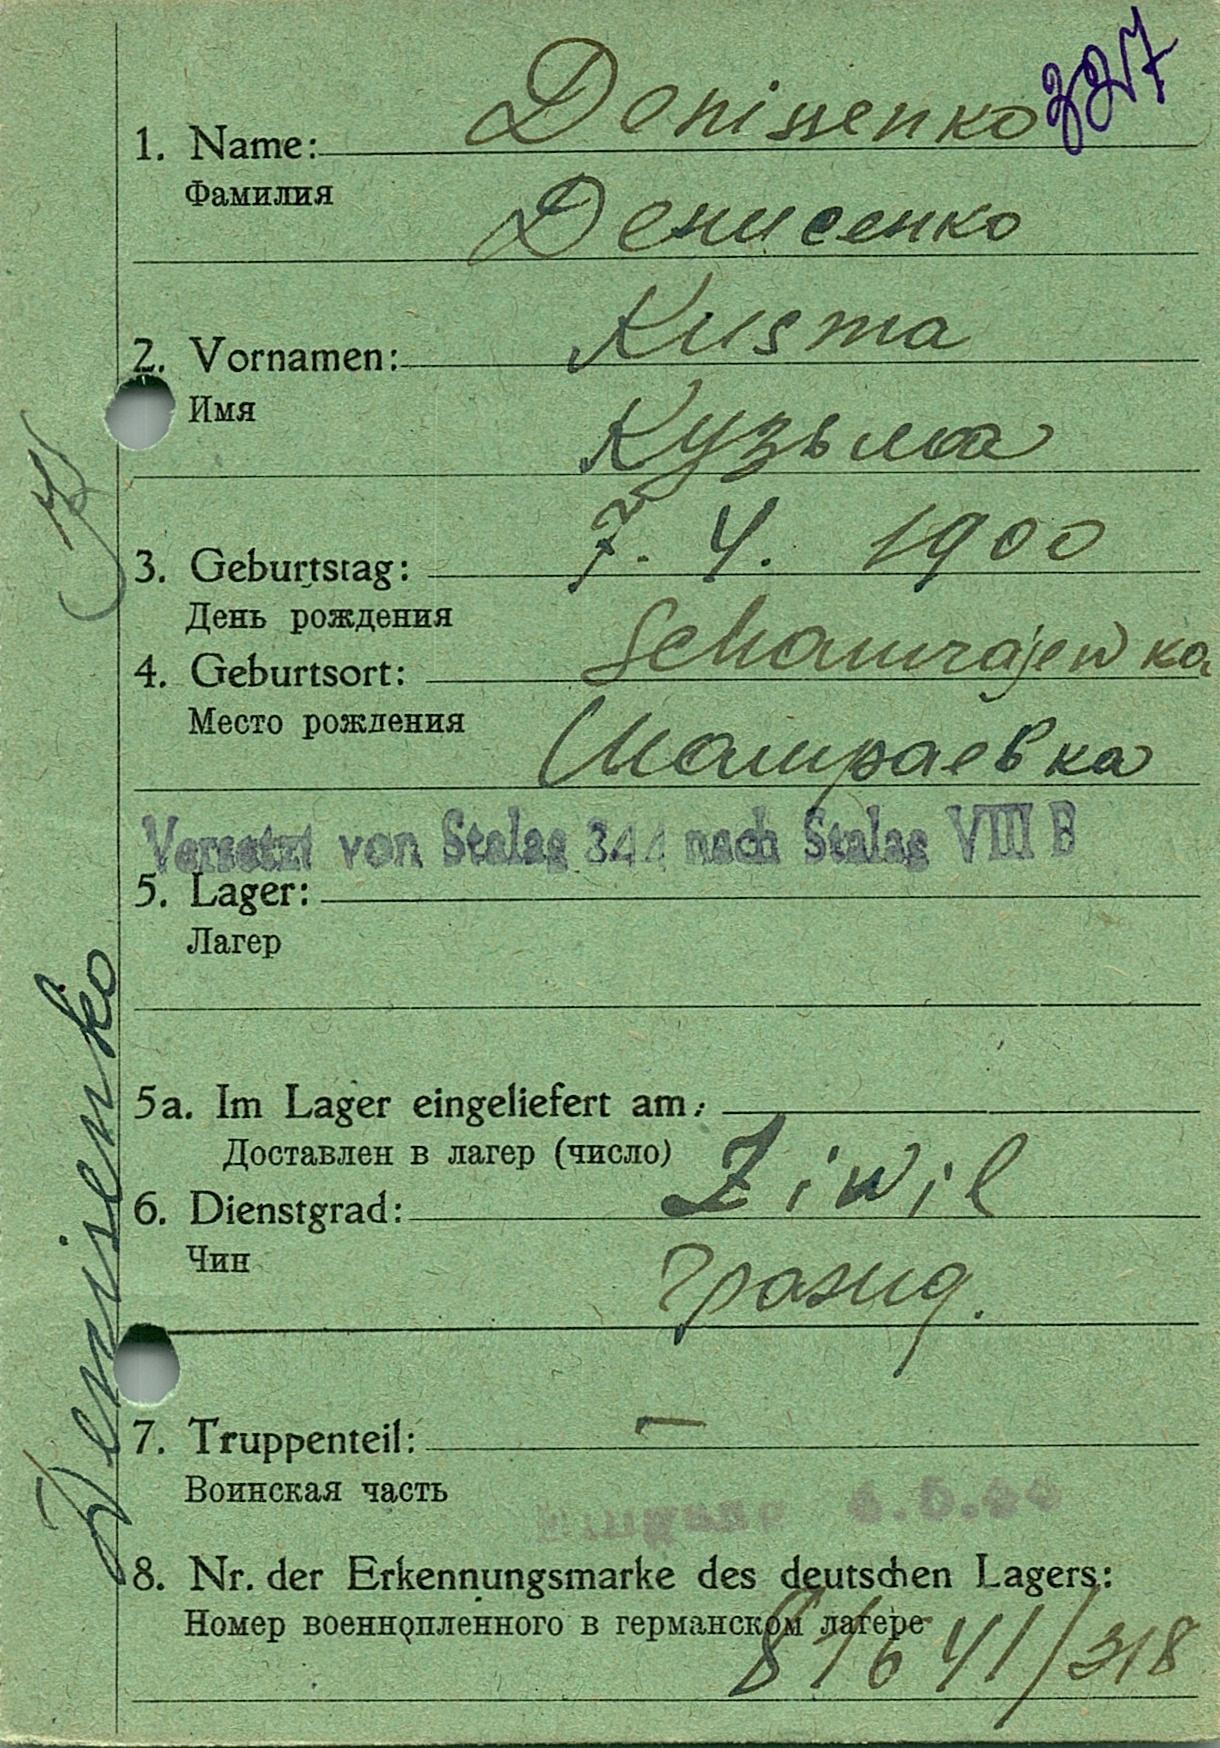 327
1. Name: Denissenko
Фамилия
Денисенко
2. Vornamen: Kusma
Имя
Кузьма
3. Geburtstag: 7. 4. 1900
День рождения
4. Geburtsort: Schamrajewка
Место рождения
Шамраевка
Versetzt von Stalag 344 nach Stalag VIII B
5. Lager:
Лагер
5a. Im Lager eingeliefert am:
Доставлен в лагер (число)
6. Dienstgrad: Ziwil
Чин
гражд.
7. Truppenteil: —
Воинская часть
Eingang 4.5.44
8. Nr. der Erkennungsmarke des deutschen Lagers:
Номер военнопленного в германском лагере
81641/318
Denisenko